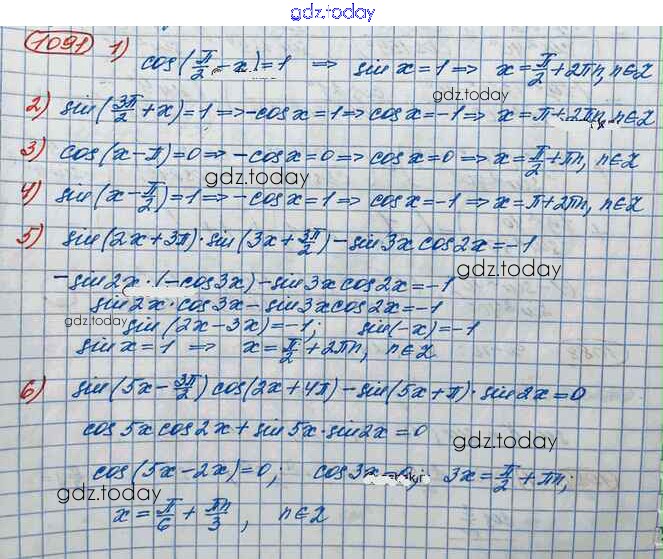 gdz.today
1091 1) cos(π/2 - x) = 1 ⇒ sin x = 1 ⇒ x = π/2 + 2πn, n∈Z
gdz.today
2) sin(3π/2 + x) = 1 ⇒ -cos x = 1 ⇒ cos x = -1 ⇒ x = π + 2πn, n∈Z
3) cos(x - π) = 0 ⇒ -cos x = 0 ⇒ cos x = 0 ⇒ x = π/2 + πn, n∈Z
gdz.today
4) sin(x - π/2) = 1 ⇒ -cos x = 1 ⇒ cos x = -1 ⇒ x = π + 2πn, n∈Z
5) sin(2x + 3π) · sin(3x + 3π/2) - sin 3x cos 2x = -1
gdz.today
-sin 2x · (-cos 3x) - sin 3x cos 2x = -1
sin 2x · cos 3x - sin 3x cos 2x = -1
gdz.today
sin(2x - 3x) = -1; sin(-x) = -1
sin x = 1 ⇒ x = π/2 + 2πn, n∈Z
6) sin(5x - 3π/2) cos(2x + 4π) - sin(5x + π) · sin 2x = 0
cos 5x cos 2x + sin 5x · sin 2x = 0
gdz.today
cos(5x - 2x) = 0; cos 3x = 0; 3x = π/2 + πn;
gdz.today
x = π/6 + πn/3, n∈Z